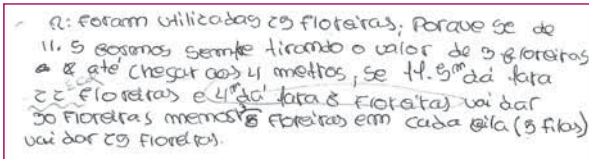 R: foram utilizadas 29 floreiras; Porque se de
11.5 sempre tirando o valor de 3 floreiras
até chegar aos 4 mettros, se 11.5 m dá fara
22 floreiras e 4 m dá fara 8 floreiras vai dar
30 floreiras menos floreiras em cada fila (3 filas)
vai dar 29 floreiras.